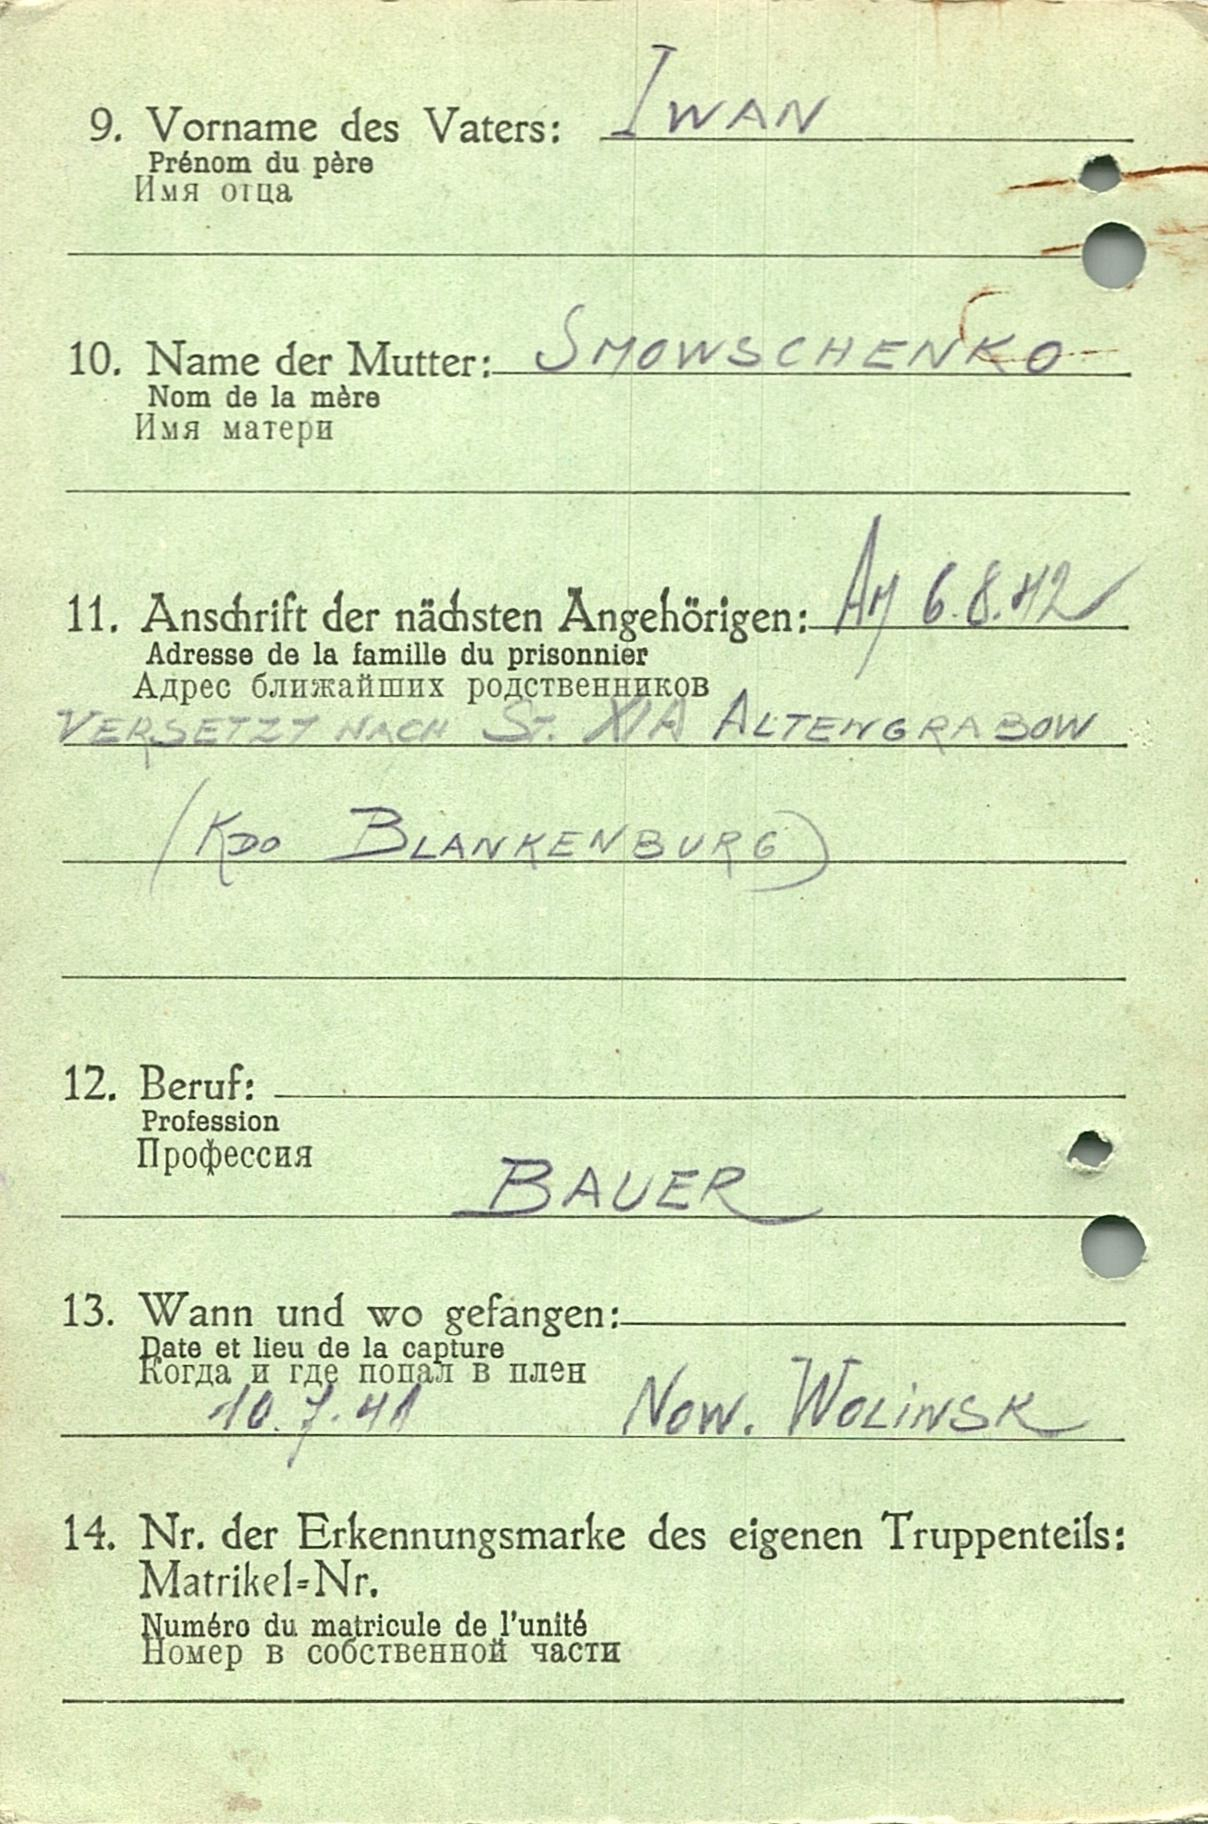 9. Vorname des Vaters: IWAN
Prénom du père
Имя отца
10. Name der Mutter: SMOWSCHENKO
Nom de la mère
Имя матери
11. Anschrift der nächsten Angehörigen: AM 6.8.42
Adresse de la famille du prisonnier
Адрес ближайших родственников
VERSETZT NACH ST. XIA ALTENGRABOW
(KDO BLANKENBURG)
12. Beruf:
Profession
Профессия
BAUER
13. Wann und wo gefangen:
Date et lieu de la capture
Когда и где попал в плен
10.7.41 NOW. WOLINSK
14. Nr. der Erkennungsmarke des eigenen Truppenteils:
Matrikel=Nr.
Numéro du matricule de l'unité
Номер в собственной части